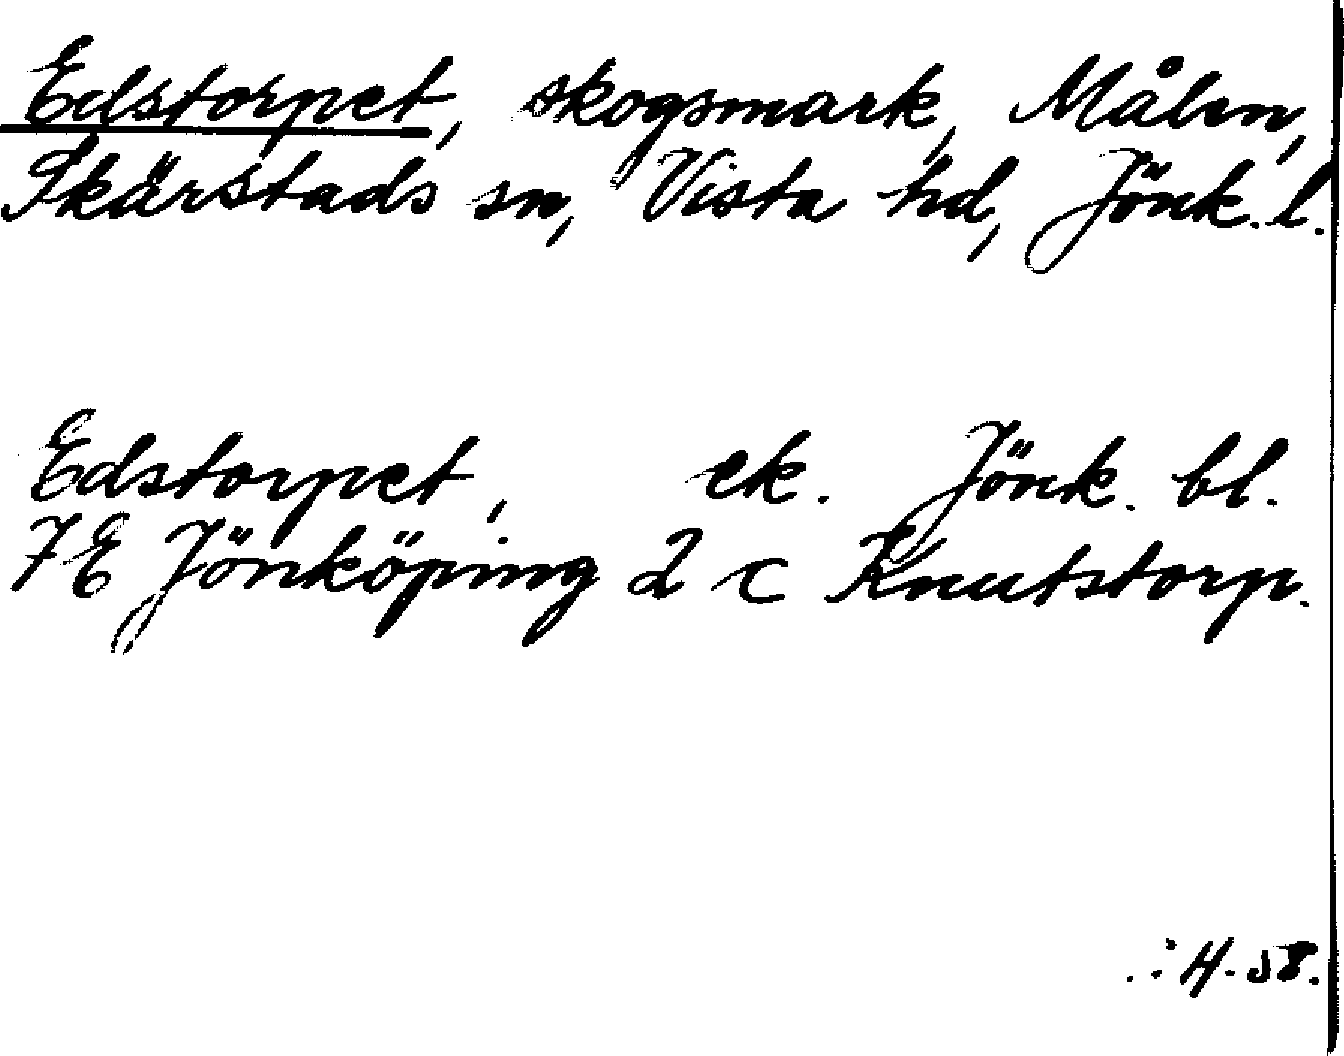 Edstorpet, skogsmark, Målen,
Skärstads sn, Vista hd, Jönk. l.
Edstorpet, ek. Jönk. bl.
7E Jönköping 2 c Knutstorp.
H-58.